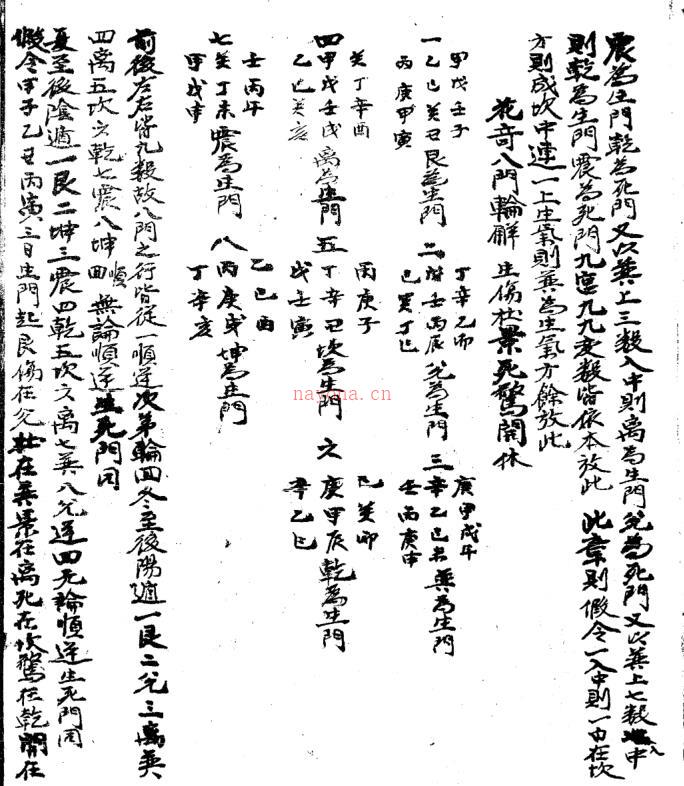 震為生門乾為死門又以巽上三数入中則离為生門兌為死門又以巽上七数入中
則乾為生門震為死門九宮九九変数皆依本放此 此章則假令一入中則一白在坎
方則成坎中連一上生氣則巽為生氣方餘放此
花奇八門輪觧 生傷杜景死驚開休
甲戊壬子
一乙己癸丑艮為生門
丙庚甲寅
丁辛乙卯
二戊壬丙辰兌為生門
己癸丁巳
庚甲戊午
三辛乙己未巽為生門
壬丙庚申
癸丁辛酉
四甲戊壬戌离為生門
乙己癸亥
丙庚子
五丁辛丑坎為生門
戊壬寅
己癸卯
六庚甲辰乾為生門
辛乙巳
壬丙午
七癸丁未震為生門
甲戊申
乙己酉
八丙庚戌坤為生門
丁辛亥
前後左右皆九殺故八門之行皆從一順逆次第輪回冬至後陽遁一艮二兌三巽
四离五坎六乾七震八坤順回無論順逆生死門同
夏至後陰遁一艮二坤三震四乾五坎六离七巽八兌逆回无論順逆生死門同
假令甲子乙丑丙寅三日生門起艮傷在兌杜在巽景在离死在坎驚在乾開在
nayona.cn